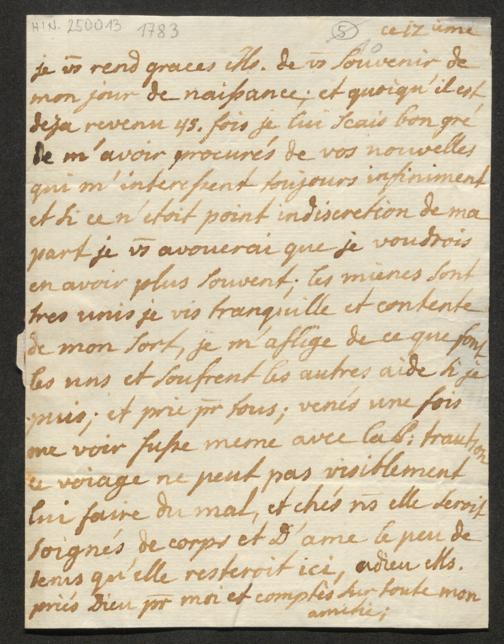 HIN. 250013 1783 (5) ce 12 ieme
je vs rend graces Ms. de vs Souvenir de
mon jour de naissance; et quoiqu'il est
deja revenu 45. fois je lui Scais bon gré
de m'avoir procurés de vos nouvelles
qui m'interessent toujours infiniment
et Si ce n'étoit point indiscretion de ma
part je vs avouerai que je voudrois
en avoir plus Souvent; les mienes Sont
tres unis je vis tranquille et contente
de mon Sort, je m'aflige de ce que font
les uns et Soufrent les autres aide Si je
puis; et prie pr tous; venés une fois
me voir fusse meme avec
ce voiage ne peut pas visiblement
lui faire du mal, et chés ns elle Seroit
Soignés de corps et D'ame le peu de
tems qu'elle resteroit ici, adieu Ms.
priés Dieu pr moi et comptés Sur toute mon
amitié;